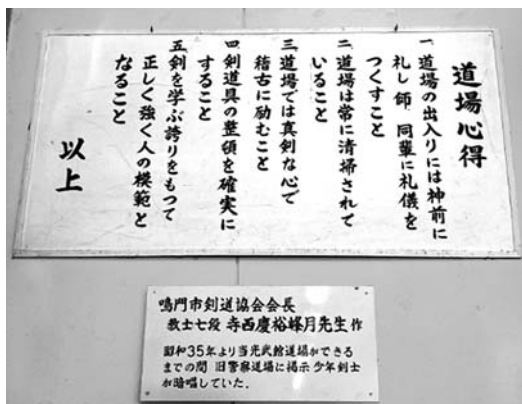 道場心得
一、道場の出入りには神前に
礼し師、同輩に礼儀を
つくすこと
二、道場は常に清掃されて
いること
三、道場では真剣な心で
稽古に励むこと
四、剣道具の整頓を確実に
すること
五、剣を学ぶ誇りをもって
正しく強く人の模範と
なること
以上
鳴門市剣道協会会長
教士七段 寺西慶裕峰月先生 作
昭和35年より当光武館道場ができる
までの間 旧警察道場に掲示 少年剣士
が暗唱していた。